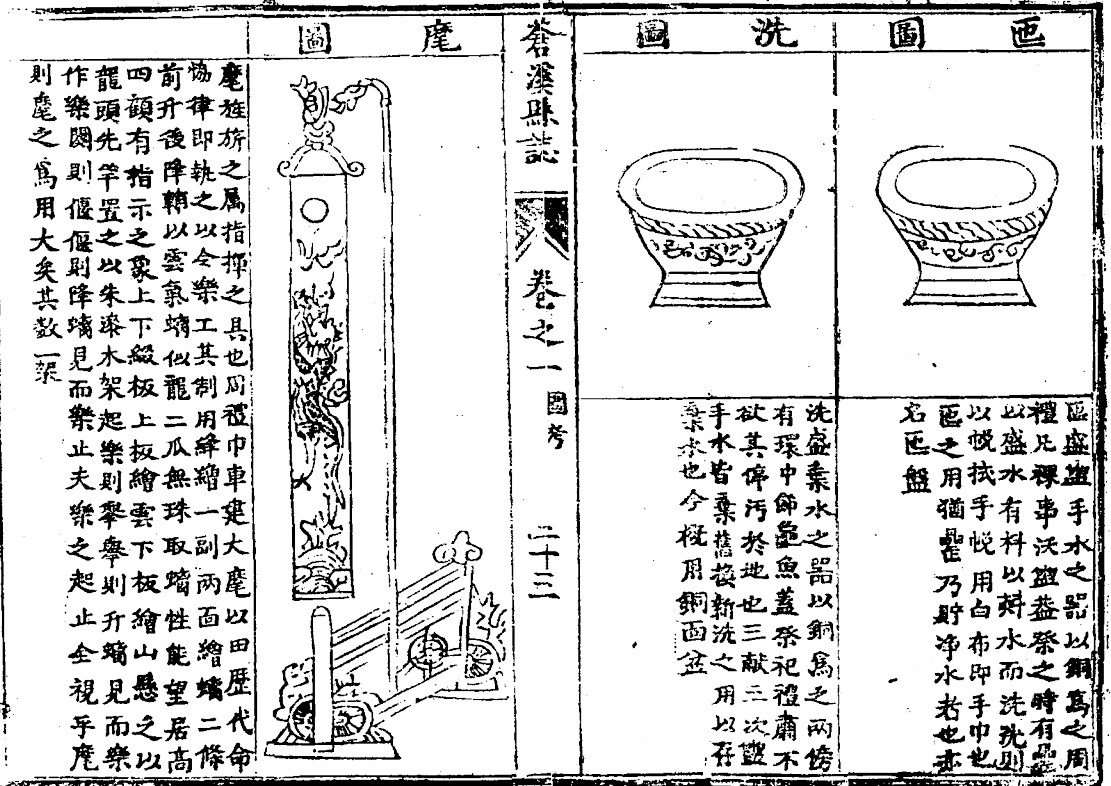 匜圖
匜盛盥手水之器以銅爲之周
禮凡祼事沃盥蓋祭之時有罍
以盛水有枓以㪺水而洗洗則
以帨拭手帨用白布即手巾也
匜之用猶罍乃貯净水者也亦
名匜盤
洗圖
洗盛棄水之器以銅爲之兩傍
有環中飾魚蓋祭祀禮肅不
欲其停汚於地也三献三次盥
手水皆棄舊換新洗之用以存
棄水也今槪用銅面盆
蒼溪縣誌
卷之一
圖考
二十三
麾圖
麾旌旂之属指揮之具也周禮巾車建大麾以田歷代命
恊律即執之以令樂工其制用絳繒一副兩面繪螭二條
前升後降韜以雲氣螭似龍二爪無珠取螭性能望居高
四顧有指示之象上下綴板上板繪雲下板繪山懸之以
龍頭先竿置之以朱漆木架起樂則舉舉則升螭見而樂
作樂闋則偃偃則降螭見而樂止夫樂之起止全視乎麾
則麾之爲用大矣其数一架